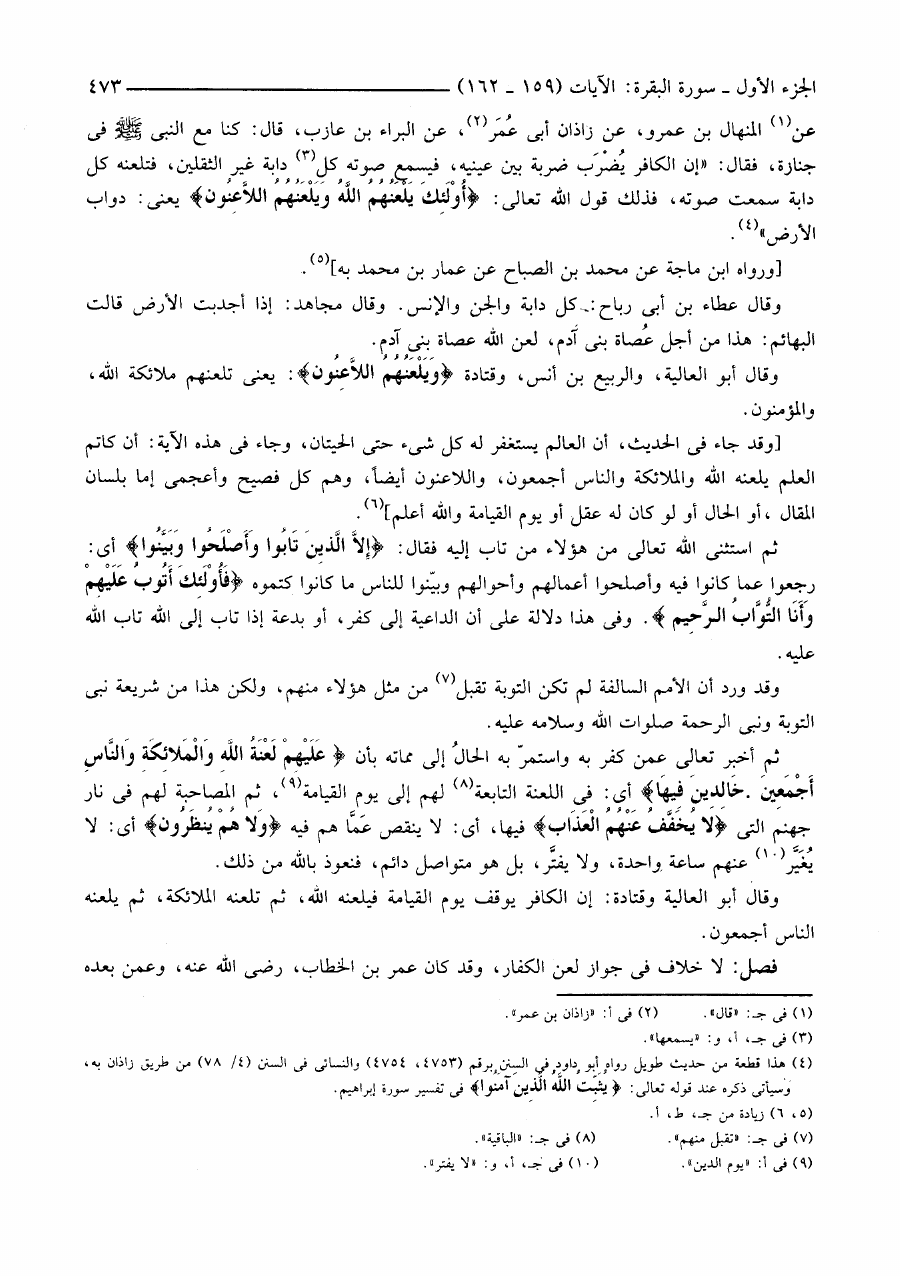 الجزء الأول ـ سورة البقرة: الآيات (١٥٩ ـ ١٦٢) ٤٧٣
عن(١) المنهال بن عمرو، عن زاذان أبى عُمَر(٢)، عن البراء بن عازب، قال: كنا مع النبى ﷺ فى
جنازة، فقال: «إن الكافر يُضْرَب ضربة بين عينيه، فيسمع صوته كل(٣) دابة غير الثقلين، فتلعنه كل
دابة سمعت صوته، فذلك قول الله تعالى: ﴿أُوْلَئِكَ يَلْعَنُهُمُ اللَّهُ وَيَلْعَنُهُمُ اللاَّعِنُون﴾ يعنى: دواب
الأرض»(٤).
[ورواه ابن ماجة عن محمد بن الصباح عن عمار بن محمد به](٥).
وقال عطاء بن أبى رباح: كل دابة والجن والإنس. وقال مجاهد: إذا أجدبت الأرض قالت
البهائم: هذا من أجل عُصاة بنى آدم، لعن الله عصاة بنى آدم.
وقال أبو العالية، والربيع بن أنس، وقتادة ﴿وَيَلْعَنُهُمُ اللاَّعِنُون﴾: يعنى تلعنهم ملائكة الله،
والمؤمنون.
[وقد جاء فى الحديث، أن العالم يستغفر له كل شىء حتى الحيتان، وجاء فى هذه الآية: أن كاتم
العلم يلعنه الله والملائكة والناس أجمعون، واللاعنون أيضاً، وهم كل فصيح وأعجمى إما بلسان
المقال ،أو الحال أو لو كان له عقل أو يوم القيامة والله أعلم](٦).
ثم استثنى الله تعالى من هؤلاء من تاب إليه فقال: ﴿إِلاَّ الَّذِينَ تَابُوا وَأَصْلَحُوا وَبَيَّنُوا﴾ أى:
رجعوا عما كانوا فيه وأصلحوا أعمالهم وأحوالهم وبيّنوا للناس ما كانوا كتموه ﴿فَأُوْلَئِكَ أَتُوبُ عَلَيْهِمْ
وَأَنَا التَّوَّابُ الرَّحِيم﴾. وفى هذا دلالة على أن الداعية إلى كفر، أو بدعة إذا تاب إلى الله تاب الله
عليه.
وقد ورد أن الأمم السالفة لم تكن التوبة تقبل(٧) من مثل هؤلاء منهم، ولكن هذا من شريعة نبى
التوبة ونبى الرحمة صلوات الله وسلامه عليه.
ثم أخبر تعالى عمن كفر به واستمرّ به الحالُ إلى مماته بأن ﴿عَلَيْهِمْ لَعْنَةُ اللَّهِ وَالْمَلائِكَةِ وَالنَّاسِ
أَجْمَعِينَ . خَالِدِينَ فِيهَا﴾ أى: فى اللعنة التابعة(٨) لهم إلى يوم القيامة(٩)، ثم المصاحبة لهم فى نار
جهنم التى ﴿لا يُخَفَّفُ عَنْهُمُ الْعَذَاب﴾ فيها، أى: لا ينقص عَمَّا هم فيه ﴿وَلا هُمْ يُنظَرُون﴾ أى: لا
يُغَيَّر(١٠) عنهم ساعة واحدة، ولا يفتَّر، بل هو متواصل دائم، فنعوذ بالله من ذلك.
وقال أبو العالية وقتادة: إن الكافر يوقف يوم القيامة فيلعنه الله، ثم تلعنه الملائكة، ثم يلعنه
الناس أجمعون.
فصل: لا خلاف فى جواز لعن الكفار، وقد كان عمر بن الخطاب، رضى الله عنه، وعمن بعده
(١) فى جـ: «قال». (٢) فى أ: «زاذان بن عمر».
(٣) فى جـ، أ، و: «يسمعها».
(٤) هذا قطعة من حديث طويل رواه أبو داود فى السنن برقم (٤٧٥٣، ٤٧٥٤) والنسائى فى السنن (٤/ ٧٨) من طريق زاذان به،
وسيأتى ذكره عند قوله تعالى: ﴿يُثَبِّتُ اللَّهُ الَّذِينَ آمَنُوا﴾ فى تفسير سورة إبراهيم.
(٥، ٦) زيادة من جـ، ط، أ.
(٧) فى جـ: «تقبل منهم». (٨) فى جـ: «الباقية».
(٩) فى أ: «يوم الدين». (١٠) فى جـ، أ، و: «لا يفتر».